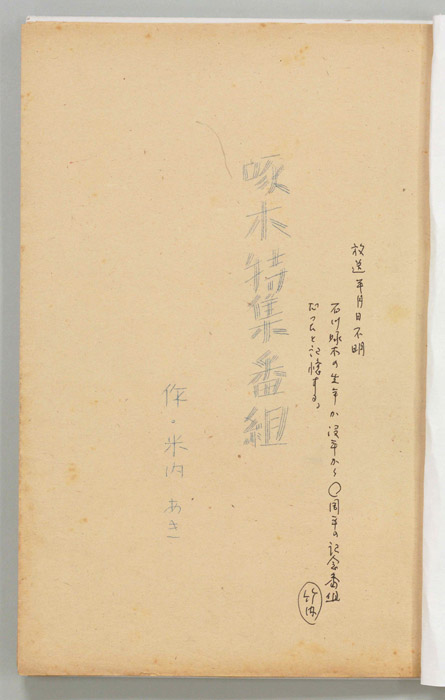 放送年月日不明
石川啄木の生年か没年から〇周年の記念番組
だったと記憶する。
竹内
啄木特集番組
作・米内あき